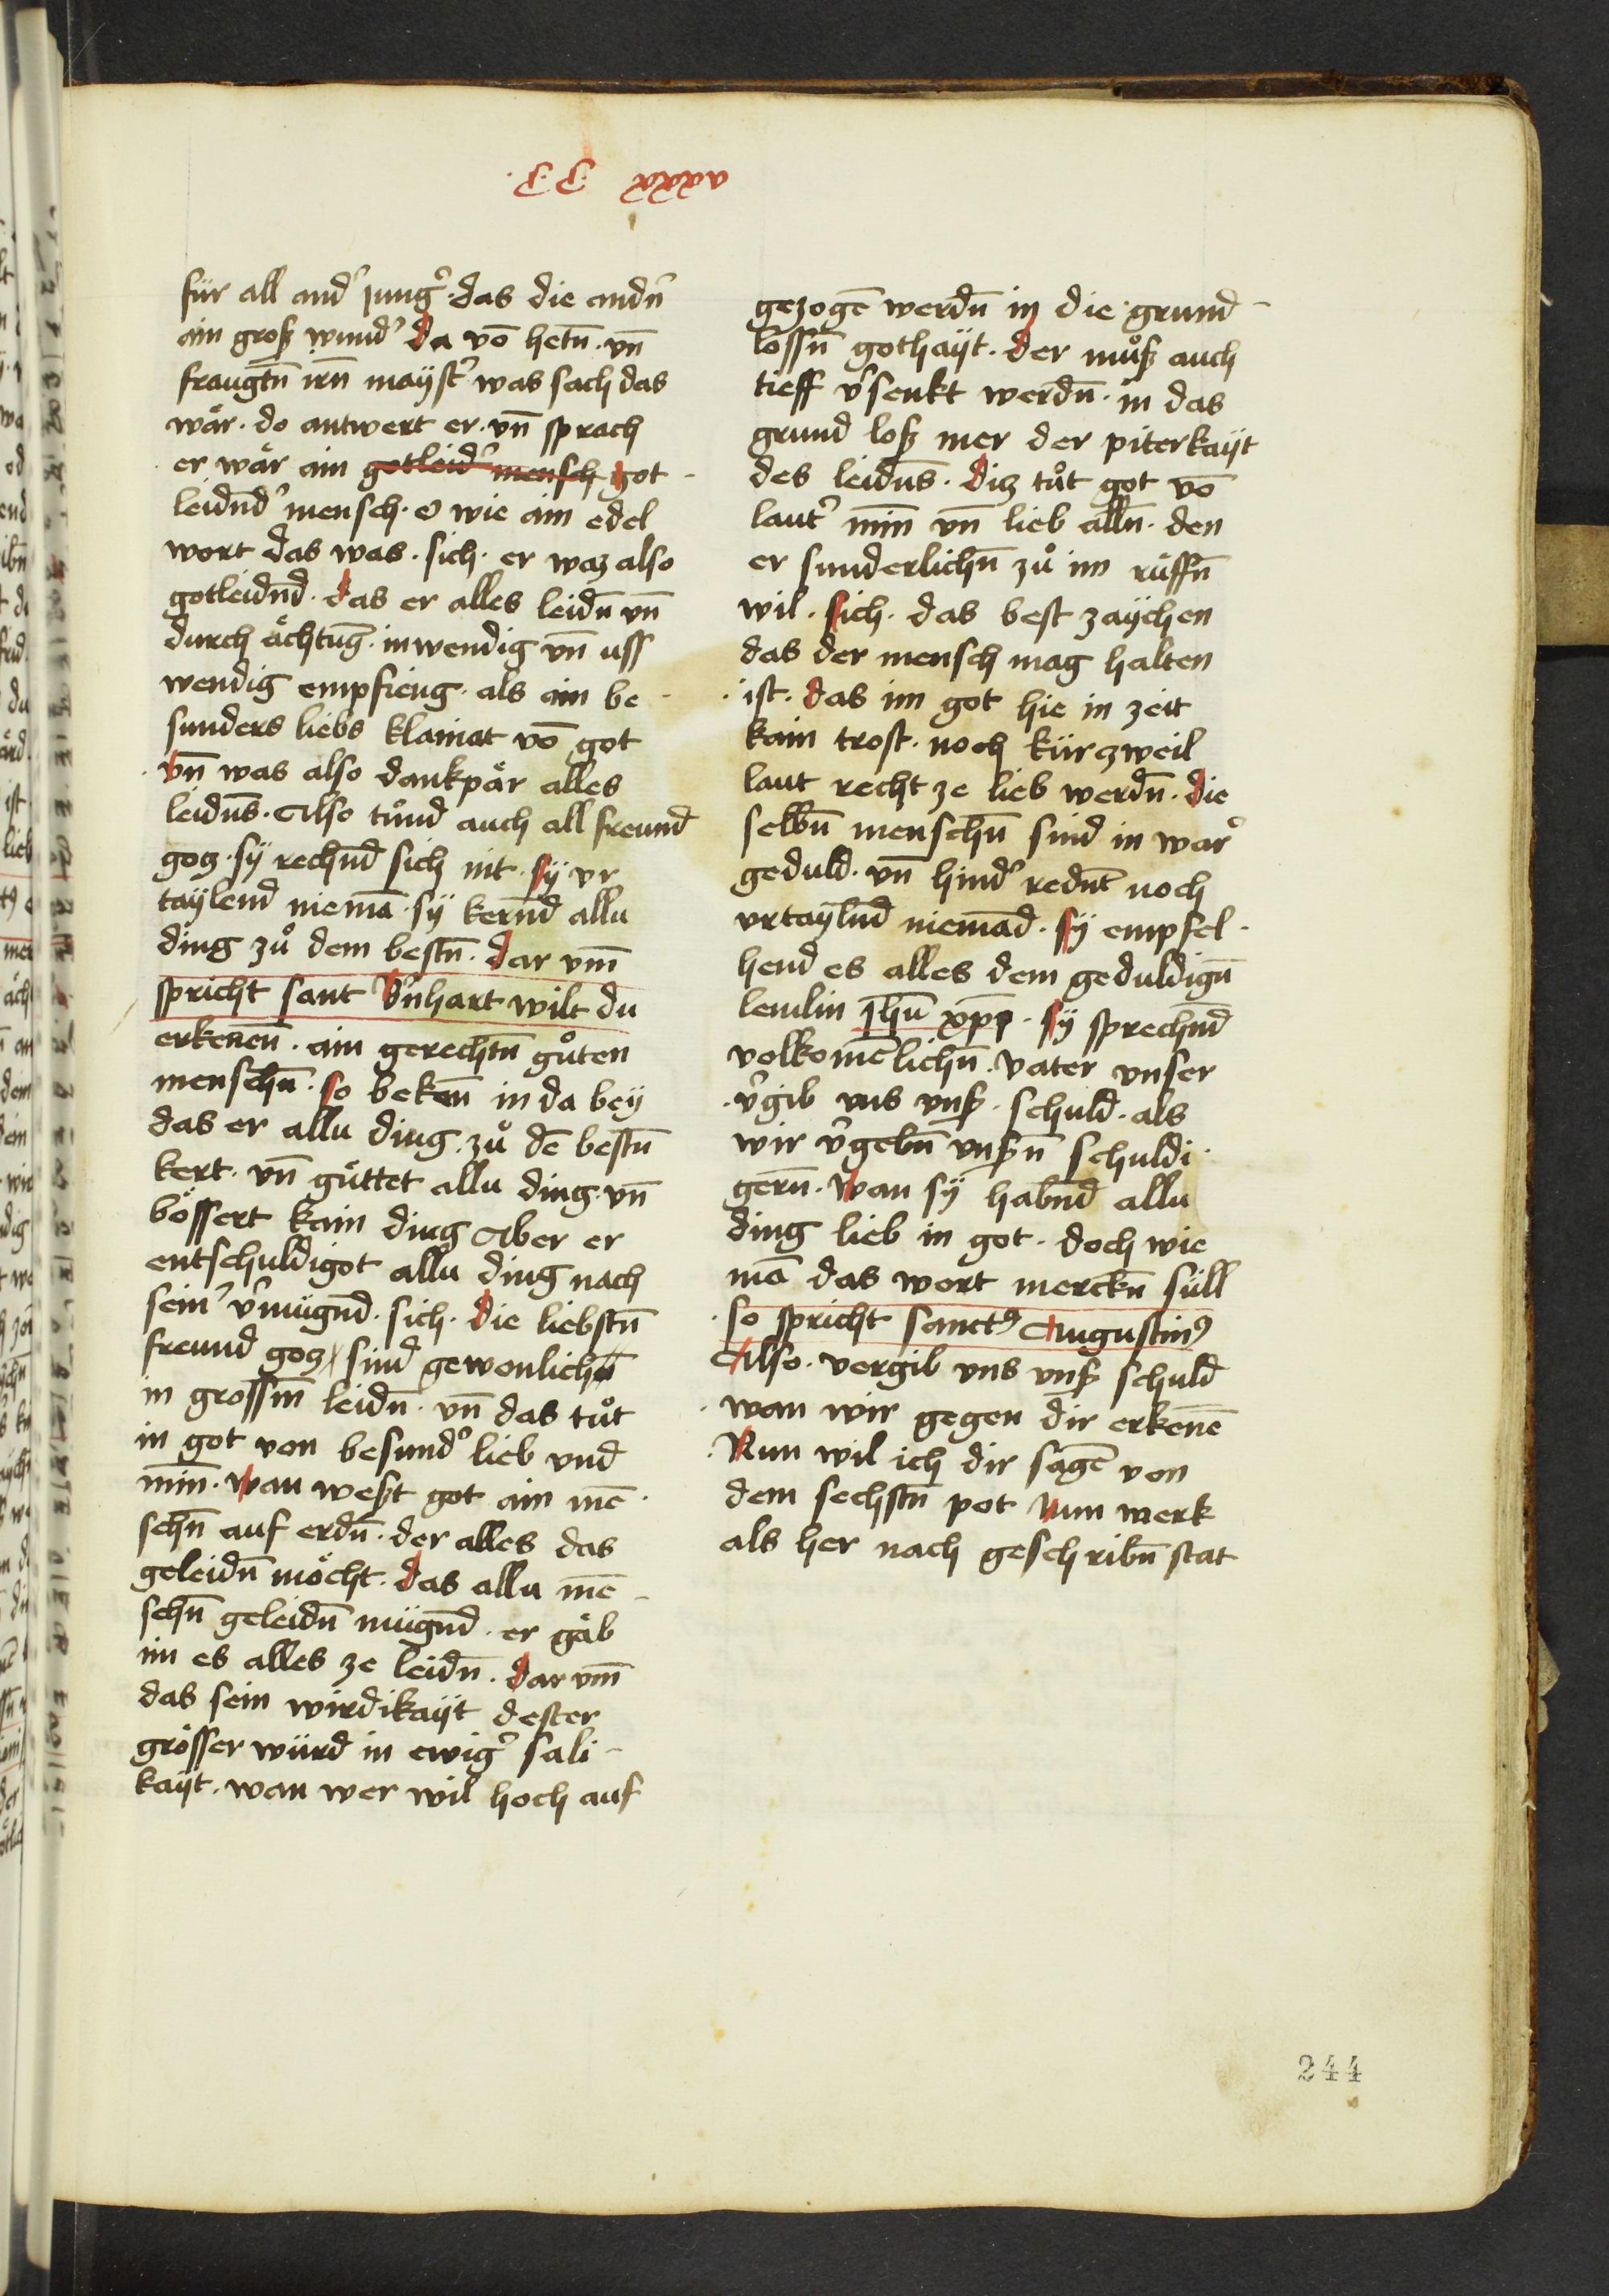 ·CC· xxxxv
für all and͛ jung͛· das die andn̄
ain groß wund͛ da vō hetn̄· vn̄
fraugtn̄ irn̄ mayst͛ was sach das
wär· do antwert er· vn̄ sprach
er wär ain gotleid͛ mensch got-
leidnd͛ mensch· O wie ain edel
wort das was· sich· er waz also
gotleidn̄d· das er alles leidn̄ vn̄
durch ächtūg· inwendig vn̄ uss
wendig empfieng· als ain be-
sunders liebs klainat vō got
vn̄ was also dankpär alles
leidn̄s· Also tůnd auch all freund
goz· sÿ rechnd̄ sich nit· sÿ vr
taÿlend niemā· sÿ kernd̄ allu
ding zů dem bestn̄· dar vm̄
spricht sant B͛nhart wilt du
erkenen̄· ain gerechtn̄ gůten
menschn̄· so beken̄ in da bey
das er allu ding· zů dē bestn̄
kert· vn̄ güttet allu ding· vn̄
bössert kain ding Aber er
entschuldigot allu ding nach
seim͛ v͛mügnd̄· sich· die liebstn̄
freund goz sind gewonlichn̄
in grossm̄ leidn̄· vn̄ das tůt
in got von besund͛ lieb vnd
min̄· wan west got ain mē-
schn̄ auf erdn̄· der alles das
geleidn̄ möcht· das allu mē-
schn̄ geleidn̄ mügnd̄· er gäb
im es alles ze leidn̄· dar vm̄
das sein wirdikaÿt dester
grösser würd in ewig͛ säli-
kaÿt· wan wer wil hoch auf
gezogē werdn̄ in die grund-
lossn̄ gothaÿt· der můß auch
tieff v͛senkt werdn̄· in das
grund loß mer der piterkaÿt
des leidn̄s· diz tůt got vō
laut͛ min̄ vn̄ lieb alln̄· den
er sunderlichn̄ zů im rüffn̄
wil· sich· das best zaÿchen
das der mensch mag halten
ist· das im got hie in zeit
kain trost· noch kürzweil
laut recht ze lieb werdn̄· die
selbn̄ menschn̄ sind in war͛
geduld· vn̄ hind͛ rednt̄ noch
vrtaÿlnd̄ niemād· sÿ empfel-
hend es alles dem geduldign̄
lemlin jhū xp̄i· sÿ sprechnd̄
volkomēlichn̄· vater vnser
v͛gib vns vnß· schuld· als
wir v͛gebn̄ vnßn̄ schuldi-
gern̄· wan sÿ habnd̄ allu
ding lieb in got· doch wie
mā das wort merckn̄ süll
so spricht sanctꝰ Augustinꝰ
Also· vergib vns vnß schuld
wan wir gegen dir erkenē
Nun wil ich dir sagē von
dem sechstn̄ pot Nun merk
als her nach geschribn̄ stat
244